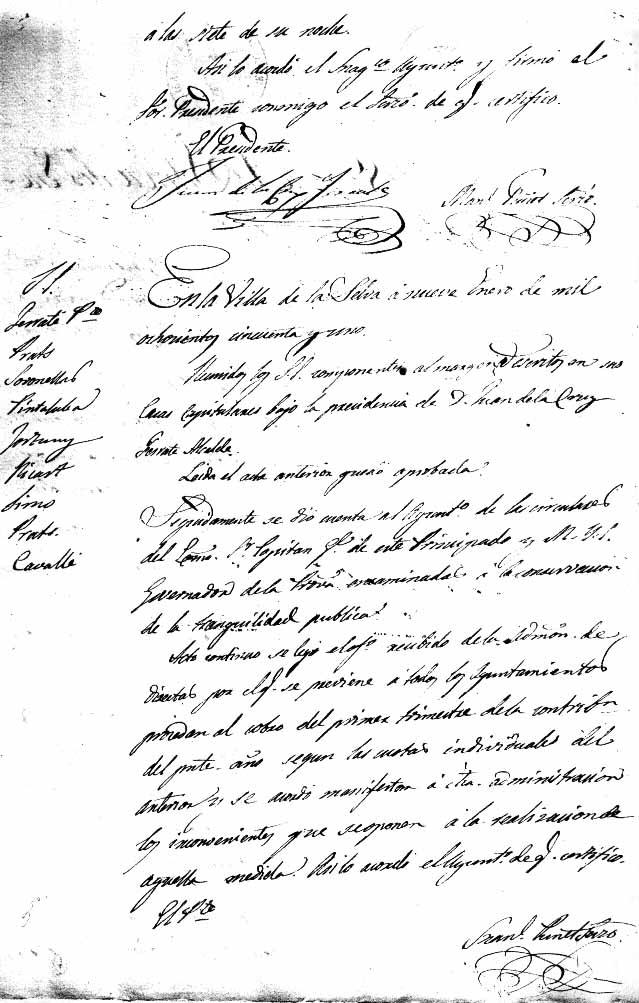 a las siete de su noche.
Asi lo acordó el Magco Ayuntto y firmó el
Sor. Presidente conmigo el Srio. de q. certifico.
El Presidente.
Juan de la Cruz Ferrate
Srio.
En la Villa de la Selva á nueve Enero de mil
ochocientos cincuenta y uno.
SS.
Ferraté Pte
Prats
Soronellas
Pintaluba
Fortuny
Ricart
Simó
Prats.
Cavallé
Reunidos los SS. componentes al margen descritos en sus
Casas Capitulares bajo la presidencia de D. Juan de la Cruz
Ferraté Alcalde.
Leida el acta anterior quedó aprobada.
Seguidamente se dió cuenta al Ayunto. de las circulares
del Exmo. Sr. Capitan Gl. de este Principado y M. Y. S.
Governador de la Prova. encaminadas á la conservacion
de la tranquilidad publica.
Acto continuo se lejó el ofo. recibido de la Admon. de
directas por el q. se previene á todos los Ayuntamientos
procedan al cobro del primer trimestre de la contribn.
del pnte. año segun las cuotas individuales del
anterior y se acordó manifestar á dha. administracion
los inconvenientes que se oponen á la realizacion de
aquella medida. Asi lo acordó el Ayunto. de q. certifico.
El Pte
Srio.